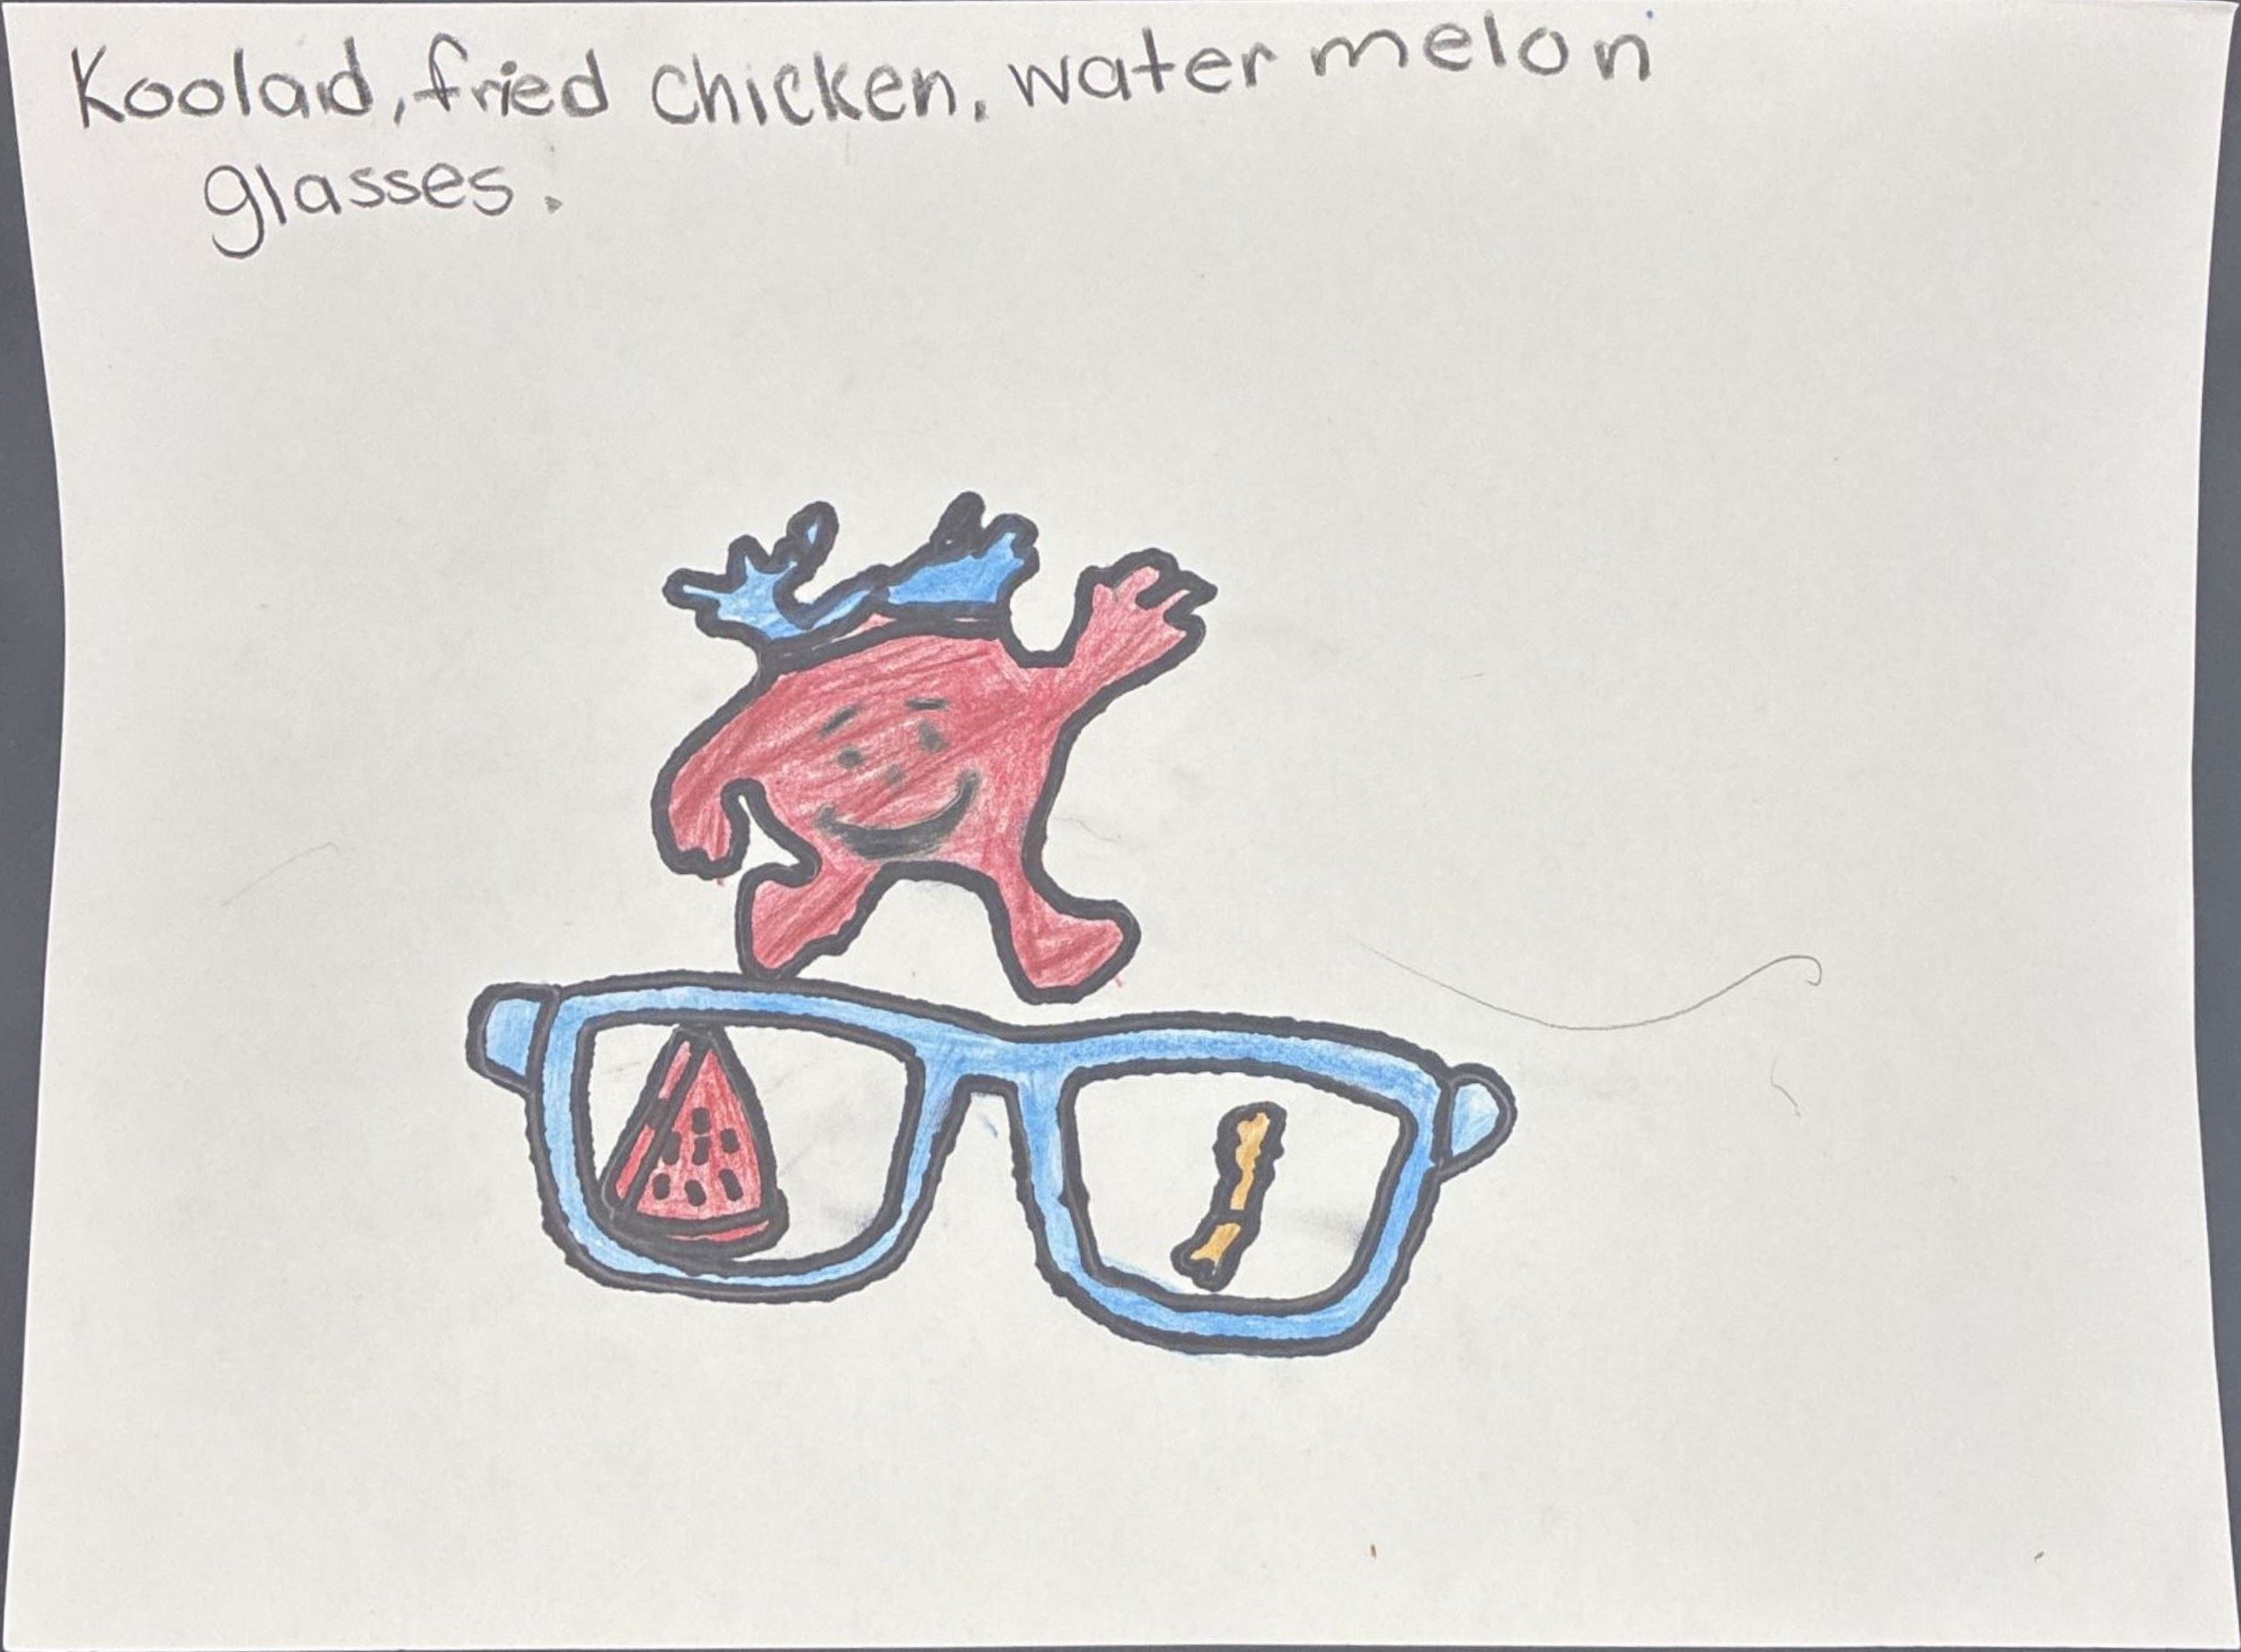 Koolaid, fried chicken, water melon
glasses.